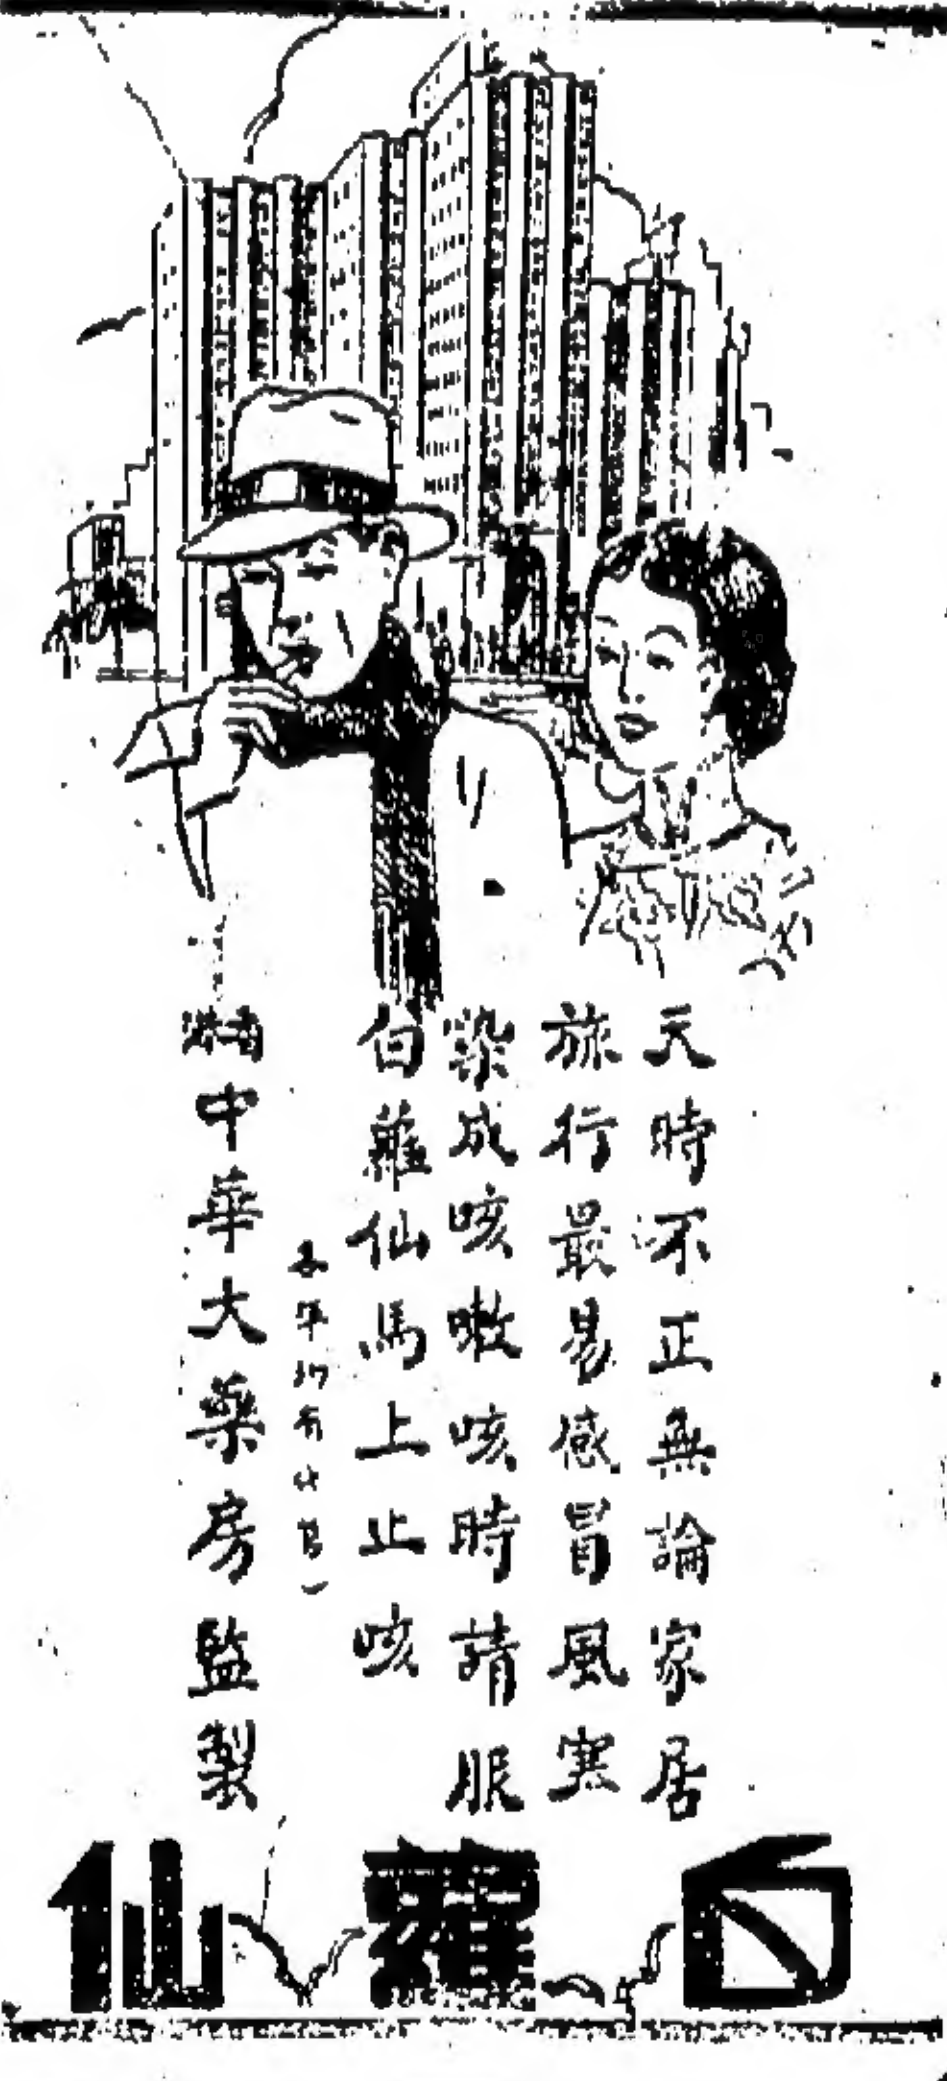 天時不正無論家居
旅行最易感冒風寒
染成咳嗽咳時請服
白蘿仙馬上止咳
各埠均有代售)
中華大藥房監製
白蘿仙